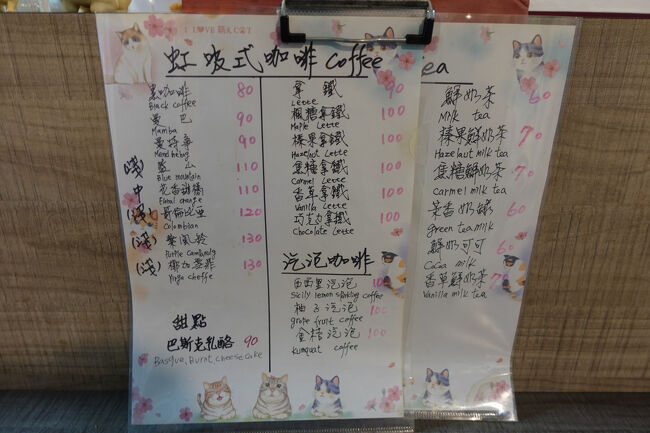 I L♥VE 萌え C🐾T
虹吸式咖啡 Coffee
黑咖啡 80
Black coffee
曼巴 90
Mamba
曼特寧 90
Mandheling
(淺) 藍山 110
Blue mountain
中 花香甜橘 110
Floral orange
(淺) 哥倫比亞 120
Colombian
(淺) 紫風鈴 130
Purple Camelandy
(淺) 椰加雪菲 130
Yirga cheffe
甜點
巴斯克乳酪 90
Basque, Burnt cheese cake
拿鐵 90
Lette
楓糖拿鐵 100
Maple Lette
榛果拿鐵 100
Hazelnut Lette
焦糖拿鐵 100
Carmel Lette
香草拿鐵 100
Vanilla Lette
巧克力拿鐵 100
Chocolate Lette
泡泡咖啡
西西里泡泡 10
Sicily lemon sparking coffee
柚子泡泡 100
grape fruit coffee
金桔泡泡 100
Kumquat coffee
ea
鮮奶茶 60
Milk tea
榛果鮮奶茶 70
Hazelnut milk tea
焦糖鮮奶茶 70
carmel milk tea
茉香奶綠 60
green tea milk
鮮奶可可 60
Cocoa milk
香草鮮奶茶 70
Vanilla milk tea